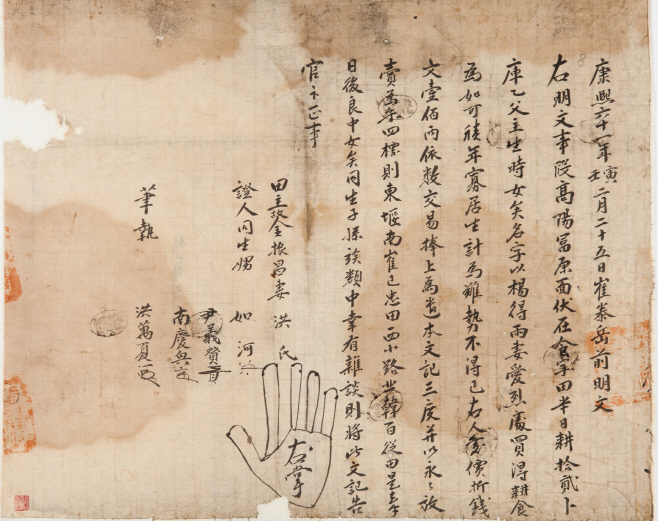 康熙六十一年壬寅二月二十五日崔泰岳前明文
右明文事段高陽冨原面伏在食字田半日耕拾貳卜
庫乙父主生時女矣名字以楊得雨妻愛烈處買得耕食
為如可積年寡居生計為難勢不得已右人處價折錢
文壹佰兩依數交易捧上為遣本文記三度并以永永放
賣為乎四標則東堰南崔已忠田西小路北韓百從田是去乎
日後良中女矣同生子孫族類中幸有雜談則將此文記告
官卞正事
田主金振昌妻 洪氏
右掌
證人同生娚 如河
尹義賛
南慶興
筆執 洪萬夏